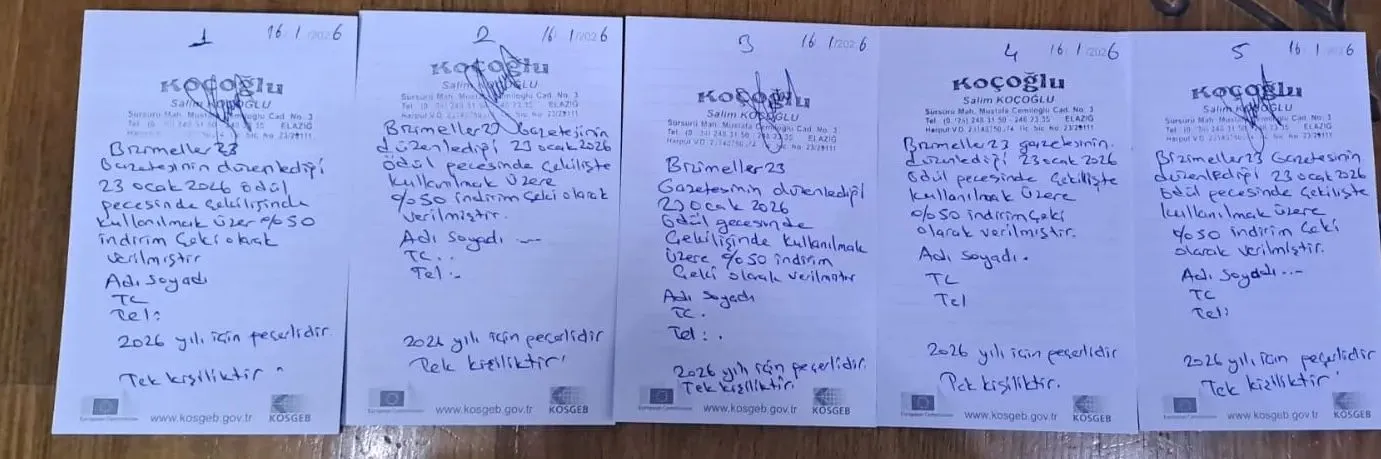 1 16/1/2026
Koçoğlu
Salim KOÇOĞLU
Sürsürü Mah. Mustafa Cemiloğlu Cad. No. 3
ELAZIĞ
Bizimeller 23
Gazetesinin düzenlediği
23 ocak 2026 ödül
gecesinde Çekilişinde
kullanılmak üzer %50
indirim Çeki olarak
verilmiştir
Adı Soyadı
TC
Tel:
2026 yılı için geçerlidir
Tek kişiliktir
European Commission www.kosgeb.gov.tr KOSGEB
2 16/1/2026
Koçoğlu
Salim KOÇOĞLU
Sürsürü Mah. Mustafa Cemiloğlu Cad. No. 3
ELAZIĞ
Bizimeller 23 Gazetesinin
düzenlediği 23 ocak 2026
ödül gecesinde Çekilişte
kullanılmak üzere
%50 indirim Çeki olarak
verilmiştir.
Adı Soyadı ...
TC..
Tel:.
2026 yılı için geçerlidir
Tek kişiliktir
European Commission www.kosgeb.gov.tr KOSGEB
3 16/1/2026
Koçoğlu
Salim KOÇOĞLU
Sürsürü Mah. Mustafa Cemiloğlu Cad. No. 3
ELAZIĞ
Bizimeller 23
Gazetesinin düzenlediği
23 ocak 2026
ödül gecesinde
Çekilişinde kullanılmak
üzere %50 indirim
Çeki olarak verilmiştir
Adı Soyadı
TC.
Tel:.
2026 yılı için geçerlidir.
Tek kişiliktir.
European Commission www.kosgeb.gov.tr KOSGEB
4 16/1/2026
Koçoğlu
Salim KOÇOĞLU
Sürsürü Mah. Mustafa Cemiloğlu Cad. No. 3
ELAZIĞ
Bizimeller 23 gazetesinin.
düzenlediği 23 ocak 2026
ödül gecesinde Çekilişte
kullanılmak üzere
%50 indirim Çeki
olarak verilmiştir.
Adı Soyadı.
TC
Tel
2026 yılı için geçerlidir
Tek kişiliktir.
European Commission www.kosgeb.gov.tr KOSGEB
5 16/1/2026
Koçoğlu
Salim KOÇOĞLU
Sürsürü Mah. Mustafa Cemiloğlu Cad. No. 3
ELAZIĞ
Bizimeller 23 Gazetesinin
düzenlediği 23 ocak 2026
ödül gecesinde Çekilişte
kullanılmak üzere
%50 indirim Çeki
olarak verilmiştir.
Adı Soyadı...
TC
Tel:
2026 yılı için geçerlidir
Tek kişiliktir
European Commission www.kosgeb.gov.tr KOSGEB